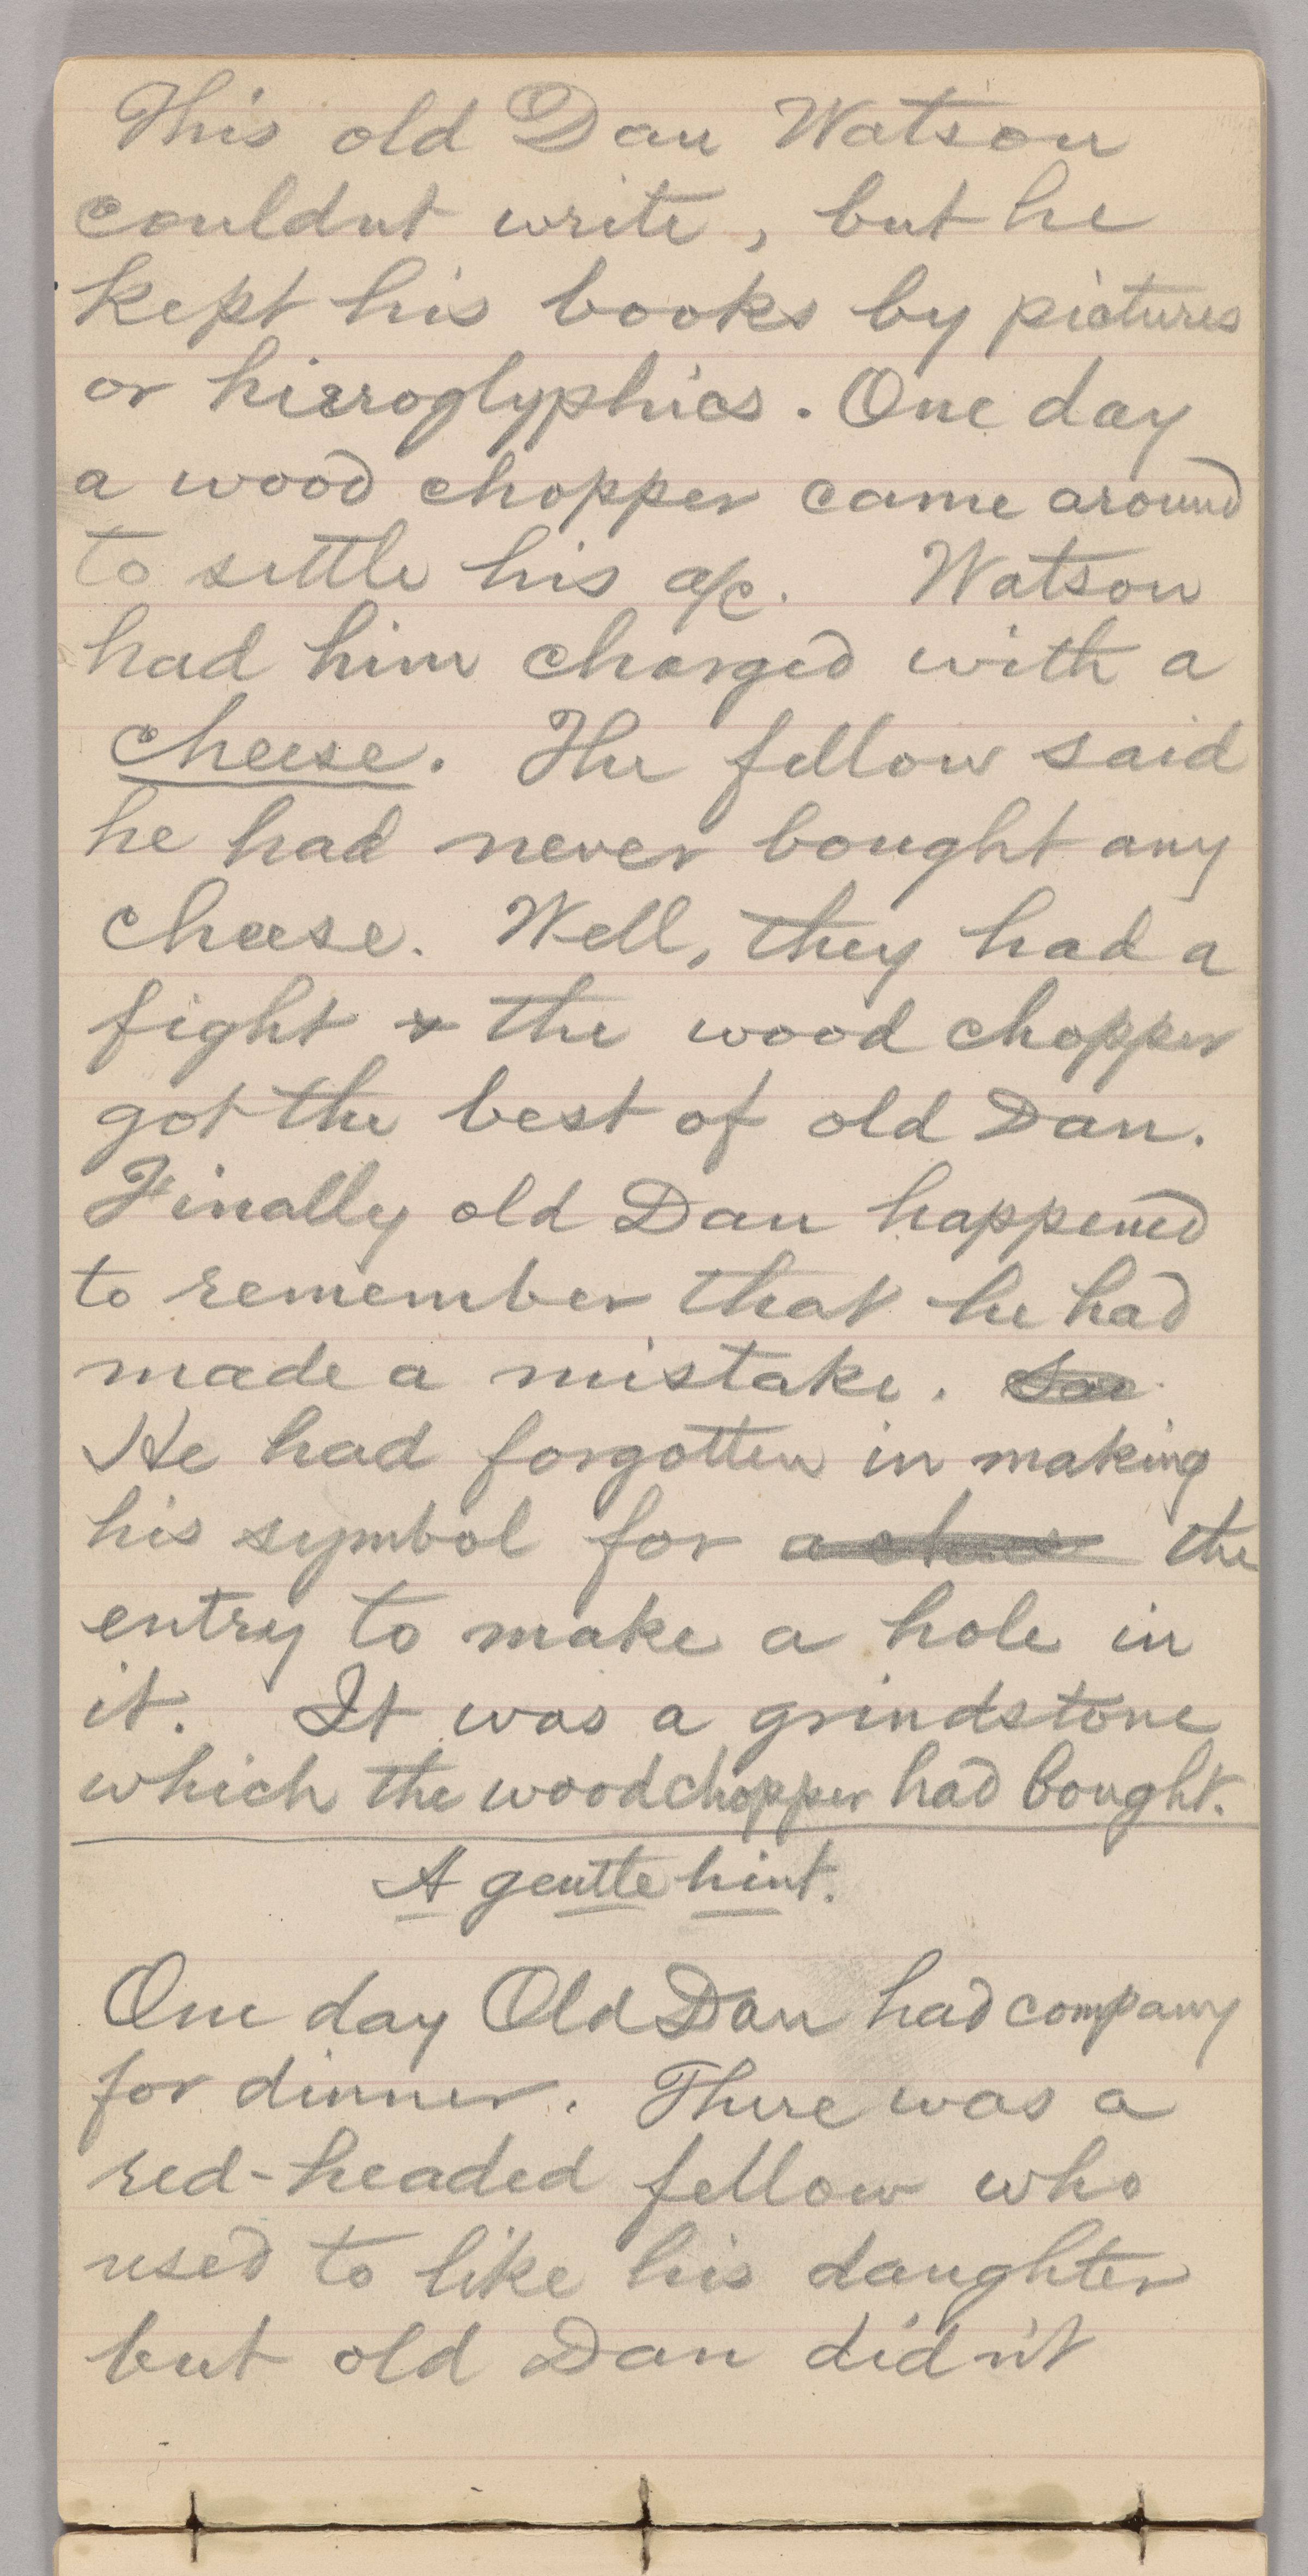 This old Dan Watson
couldnt write, but he
kept his books by pictures
or hieroglyphics. One day
a wood chopper came around
to settle his a/c. Watson
had him charged with a
cheese. The fellow said
he had never bought any
cheese. Well, they had a
fight & the wood chopper
got the best of old Dan.
Finally old Dan happened
to remember that he had
made a mistake.
He had forgotten in making
his symbol for the
entry to make a hole in
it. It was a grindstone
which the woodchopper had bought.
A gentle hint.
One day Old Dan had company
for dinner. There was a
red-headed fellow who
used to like his daughter
but old Dan didn't